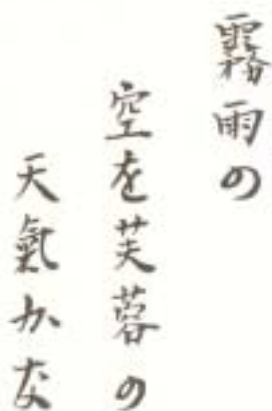 霧雨の
空を芙蓉の
天氣かな